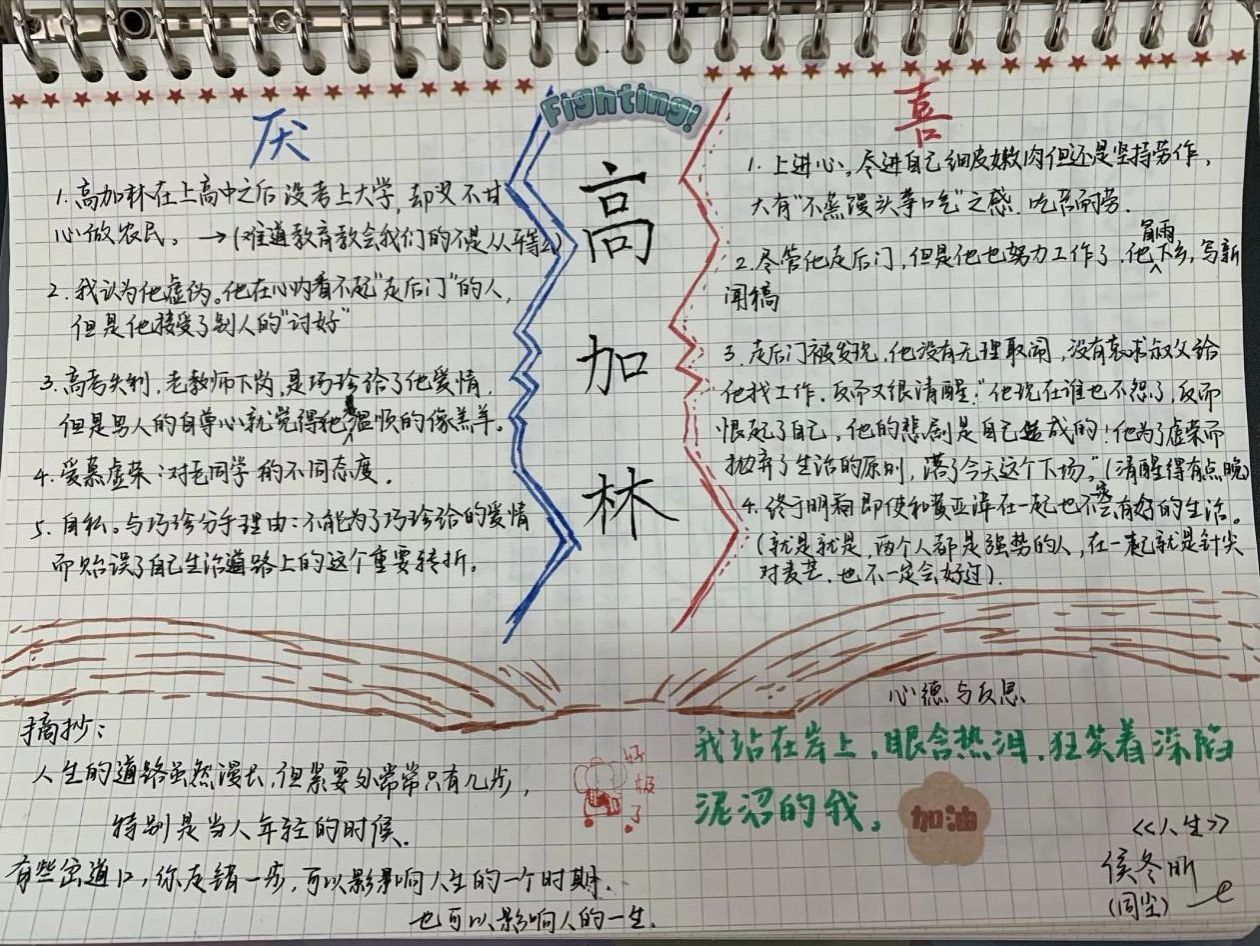 Fighting!
厌
1. 高加林在上高中之后没考上大学，却又不甘
心做农民。→（难道教育教会我们的不是人人平等么）
2. 我认为他虚伪。他在心内看不起"走后门"的人，
但是他接受了别人的"讨好"
3. 高考失利，老教师下岗，是巧珍给了他爱情，
但是男人的自尊心就觉得他是温顺的像羔羊。
4. 爱慕虚荣：对老同学的不同态度。
5. 自私。与巧珍分手理由：不能为了巧珍给的爱情
而贻误了自己生活道路上的这个重要转折。
高
加
林
喜
1. 上进心。尽进自己细皮嫩肉但还是坚持劳作，
大有"不蒸馒头争口气"之感。吃苦耐劳。
2. 尽管他走后门，但是他也努力工作了，他冒雨下乡，写新
闻稿
3. 走后门被发现，他没有无理取闹，没有哀求叔父给
他找工作，反而又很清醒："他现在谁也不怨了，反而
恨起了自己，他的悲剧是自己造成的！他为了虚荣而
抛弃了生活的原则，落了今天这个下场。"（清醒得有点晚）
4. 终于明白即使和黄亚萍在一起也不会有好的生活。
（就是就是，两个人都是强势的人，在一起就是针尖
对麦芒，也不一定会好过）.
摘抄：
人生的道路虽然漫长，但紧要处常常只有几步，
特别是当人年轻的时候.
有些岔道口，你走错一步，可以影响人生的一个时期，
也可以影响人的一生.
好极了
心德与反思
我站在岸上，眼含热泪，狂笑着深陷
泥沼的我。
加油
《人生》
侯冬明
(同尘)